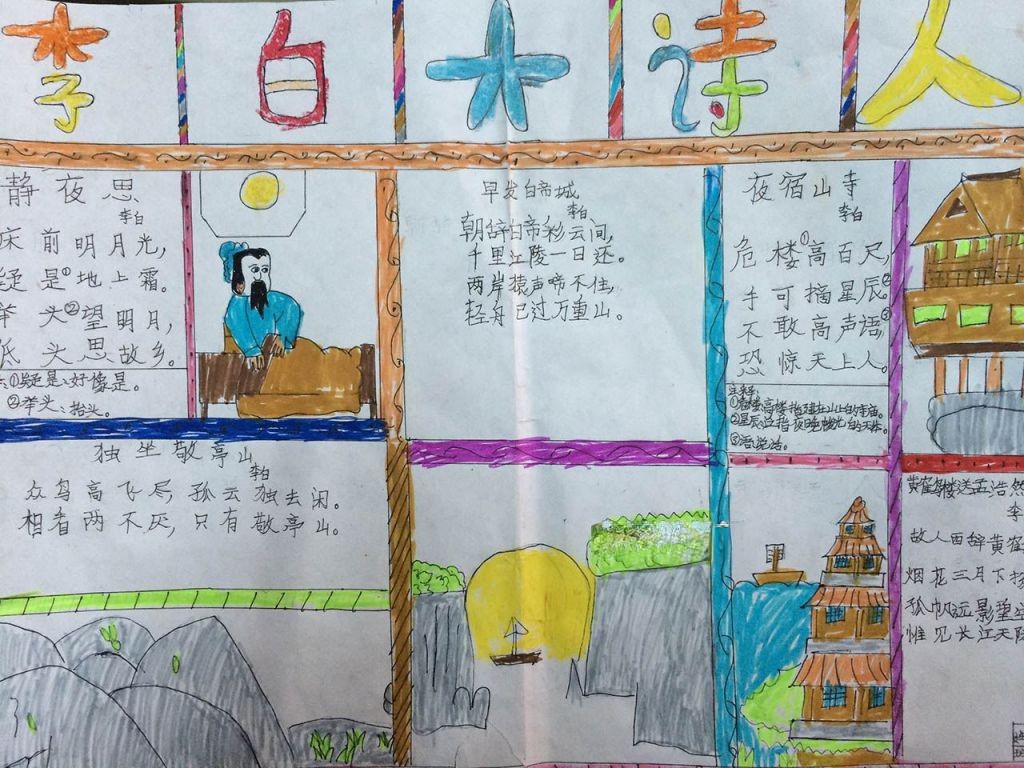 李白大诗人
静夜思
李白
床前明月光,
疑是①地上霜。
举头②望明月,
低头思故乡。
①疑是:好像是。
②举头:抬头。
早发白帝城
李白
朝辞白帝彩云间,
千里江陵一日还。
两岸猿声啼不住,
轻舟已过万重山。
夜宿山寺
李白
危楼①高百尺,
手可摘星辰②。
不敢高声语③,
恐惊天上人。
注释:
高楼,指建在山上的寺庙。
②星辰:泛指夜晚的天体。
③语:说话。
独坐敬亭山
李白
众鸟高飞尽,孤云独去闲。
相看两不厌,只有敬亭山。
黄鹤楼送孟浩然
李
故人西辞黄鹤
烟花三月下扬
孤帆远影
惟见长江天际